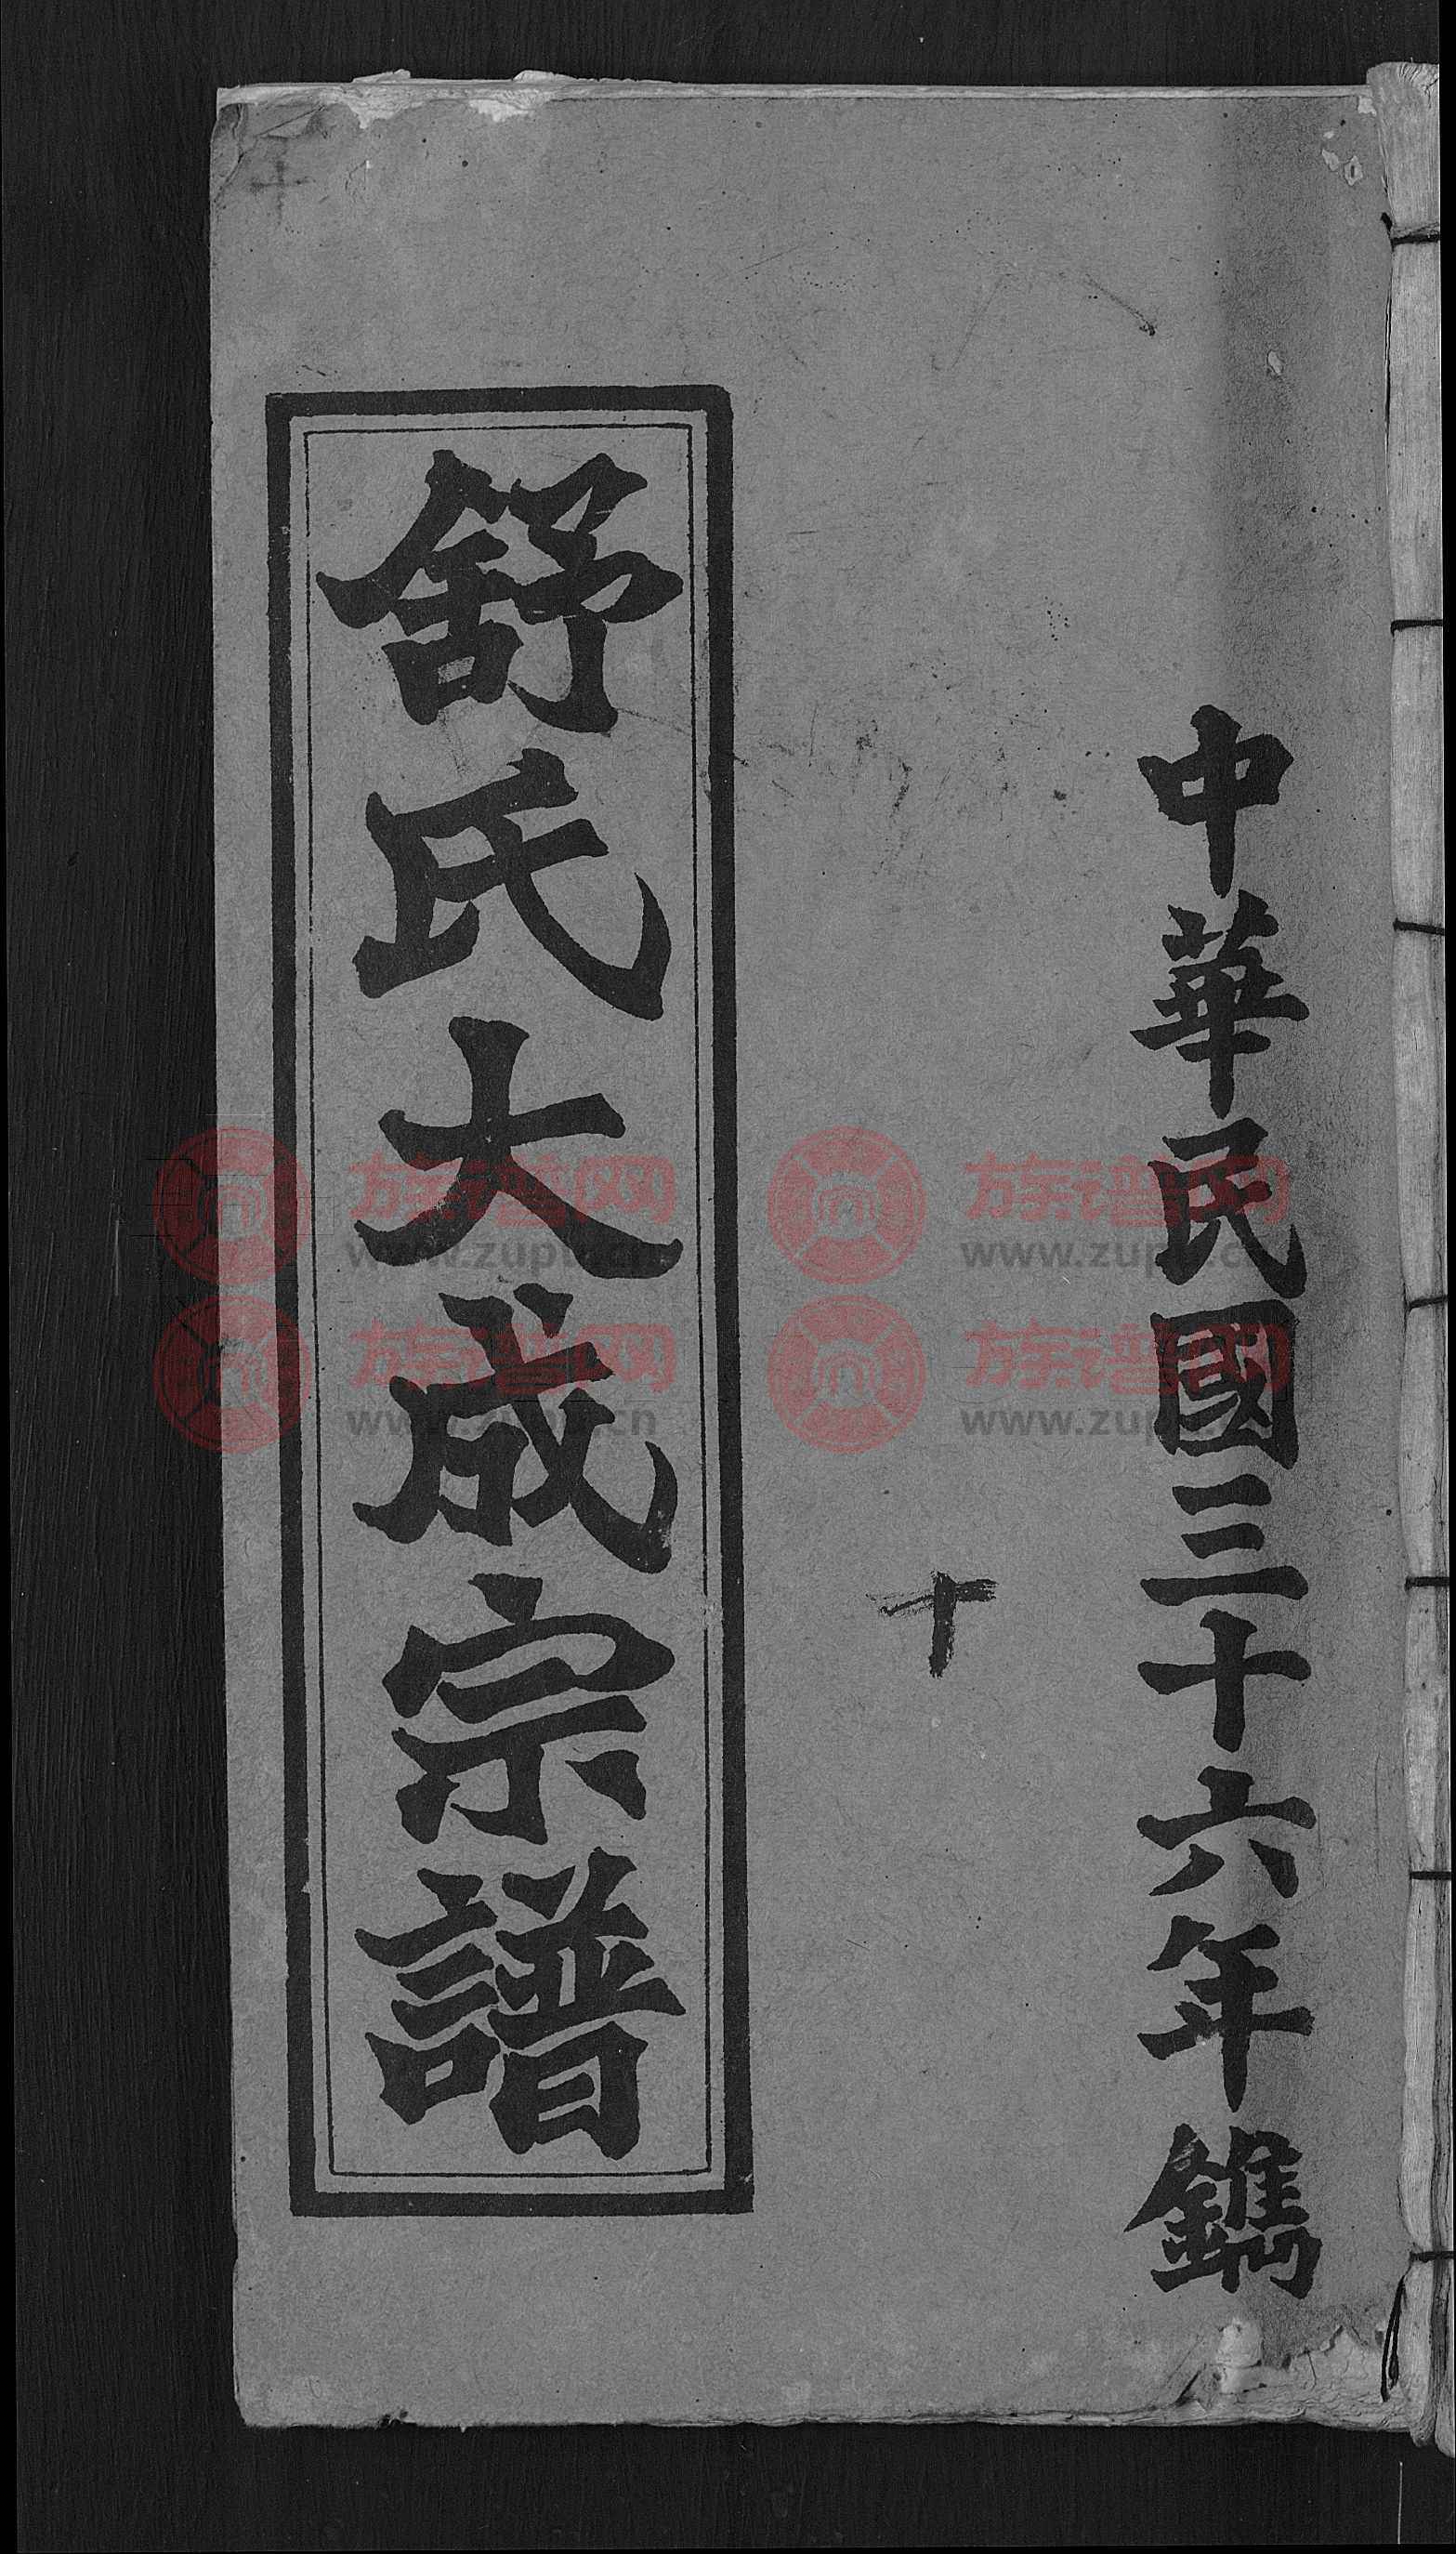 中華民國三十六年鐫
十
舒氏大成宗譜
十
族谱网
www.zupu.cn
族谱网
www.zupu.cn
族谱网
www.zupu.cn
族谱网
www.zupu.cn